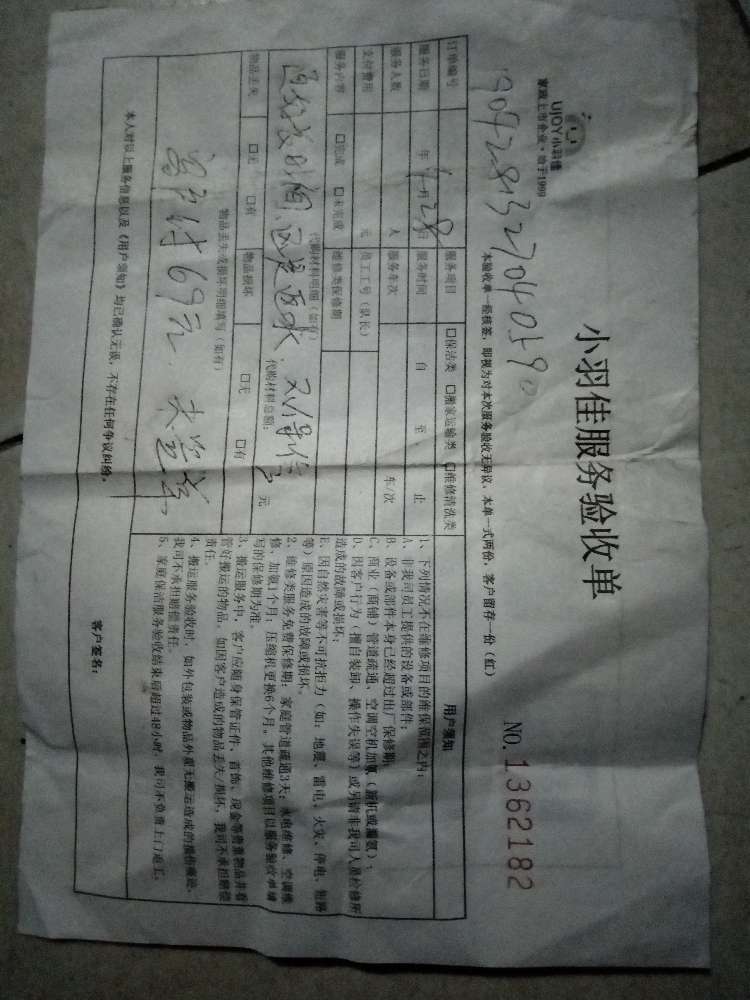 UJOY小羽佳
家政上市企业·始于1999
小羽佳服务验收单
NO.1362182
本验收单一经核签，即视为对本次服务验收无异议，本单一式两份，客户留存一份（红）
订单编号 1904281327040590
服务项目 口保洁类 口搬家运输类 口维修清洗类
服务日期 年4月28日 服务时间 自 至 止
服务人数 人 服务车次 车/次
支付费用 元 员工工号（队长）
服务内容 口完成 口未完成 维修类保修期
代购材料明细（如有）
代购材料总额： 元
物品丢失 口无 口有 物品损坏 口无 口有
物品丢失或损坏明细填写（如有）
客户付69元
本人对以上服务信息以及《用户须知》均已确认无误，不存在任何争议纠纷。
用户须知
1、下列情况不在维修项目的维保范围之内：
A、非我司员工提供的设备或部件；
B、设备或部件本身已经超过出厂保修期；
C、商业（商铺）管道疏通、空调空机加氨（新机或漏氨）；
D、因客户行为（擅自装卸、操作失误等）或另请非我司人员检修所
造成的故障或损坏；
E、因自然灾害等不可抗拒力（如：地震、雷电、火灾、停电、短路
等）原因造成的故障或损坏。
2、维修类服务免费保修期：家庭管道疏通3天；水电维修、空调维
修、加氨1个月；压缩机更换6个月。其他维修项目以服务验收单填
写的保修期为准。
3、搬运服务中，客户应随身保管证件、首饰、现金等贵重物品并看
管好搬运的物品。如因客户造成的物品丢失/损坏，我司不承担赔偿
责任。
4、搬运服务验收时，如外包装或物品外观无搬运造成的损伤痕迹，
我司不承担赔偿责任。
5、家庭保洁服务验收结束后超过48小时，我司不负责上门返工。
客户签名：